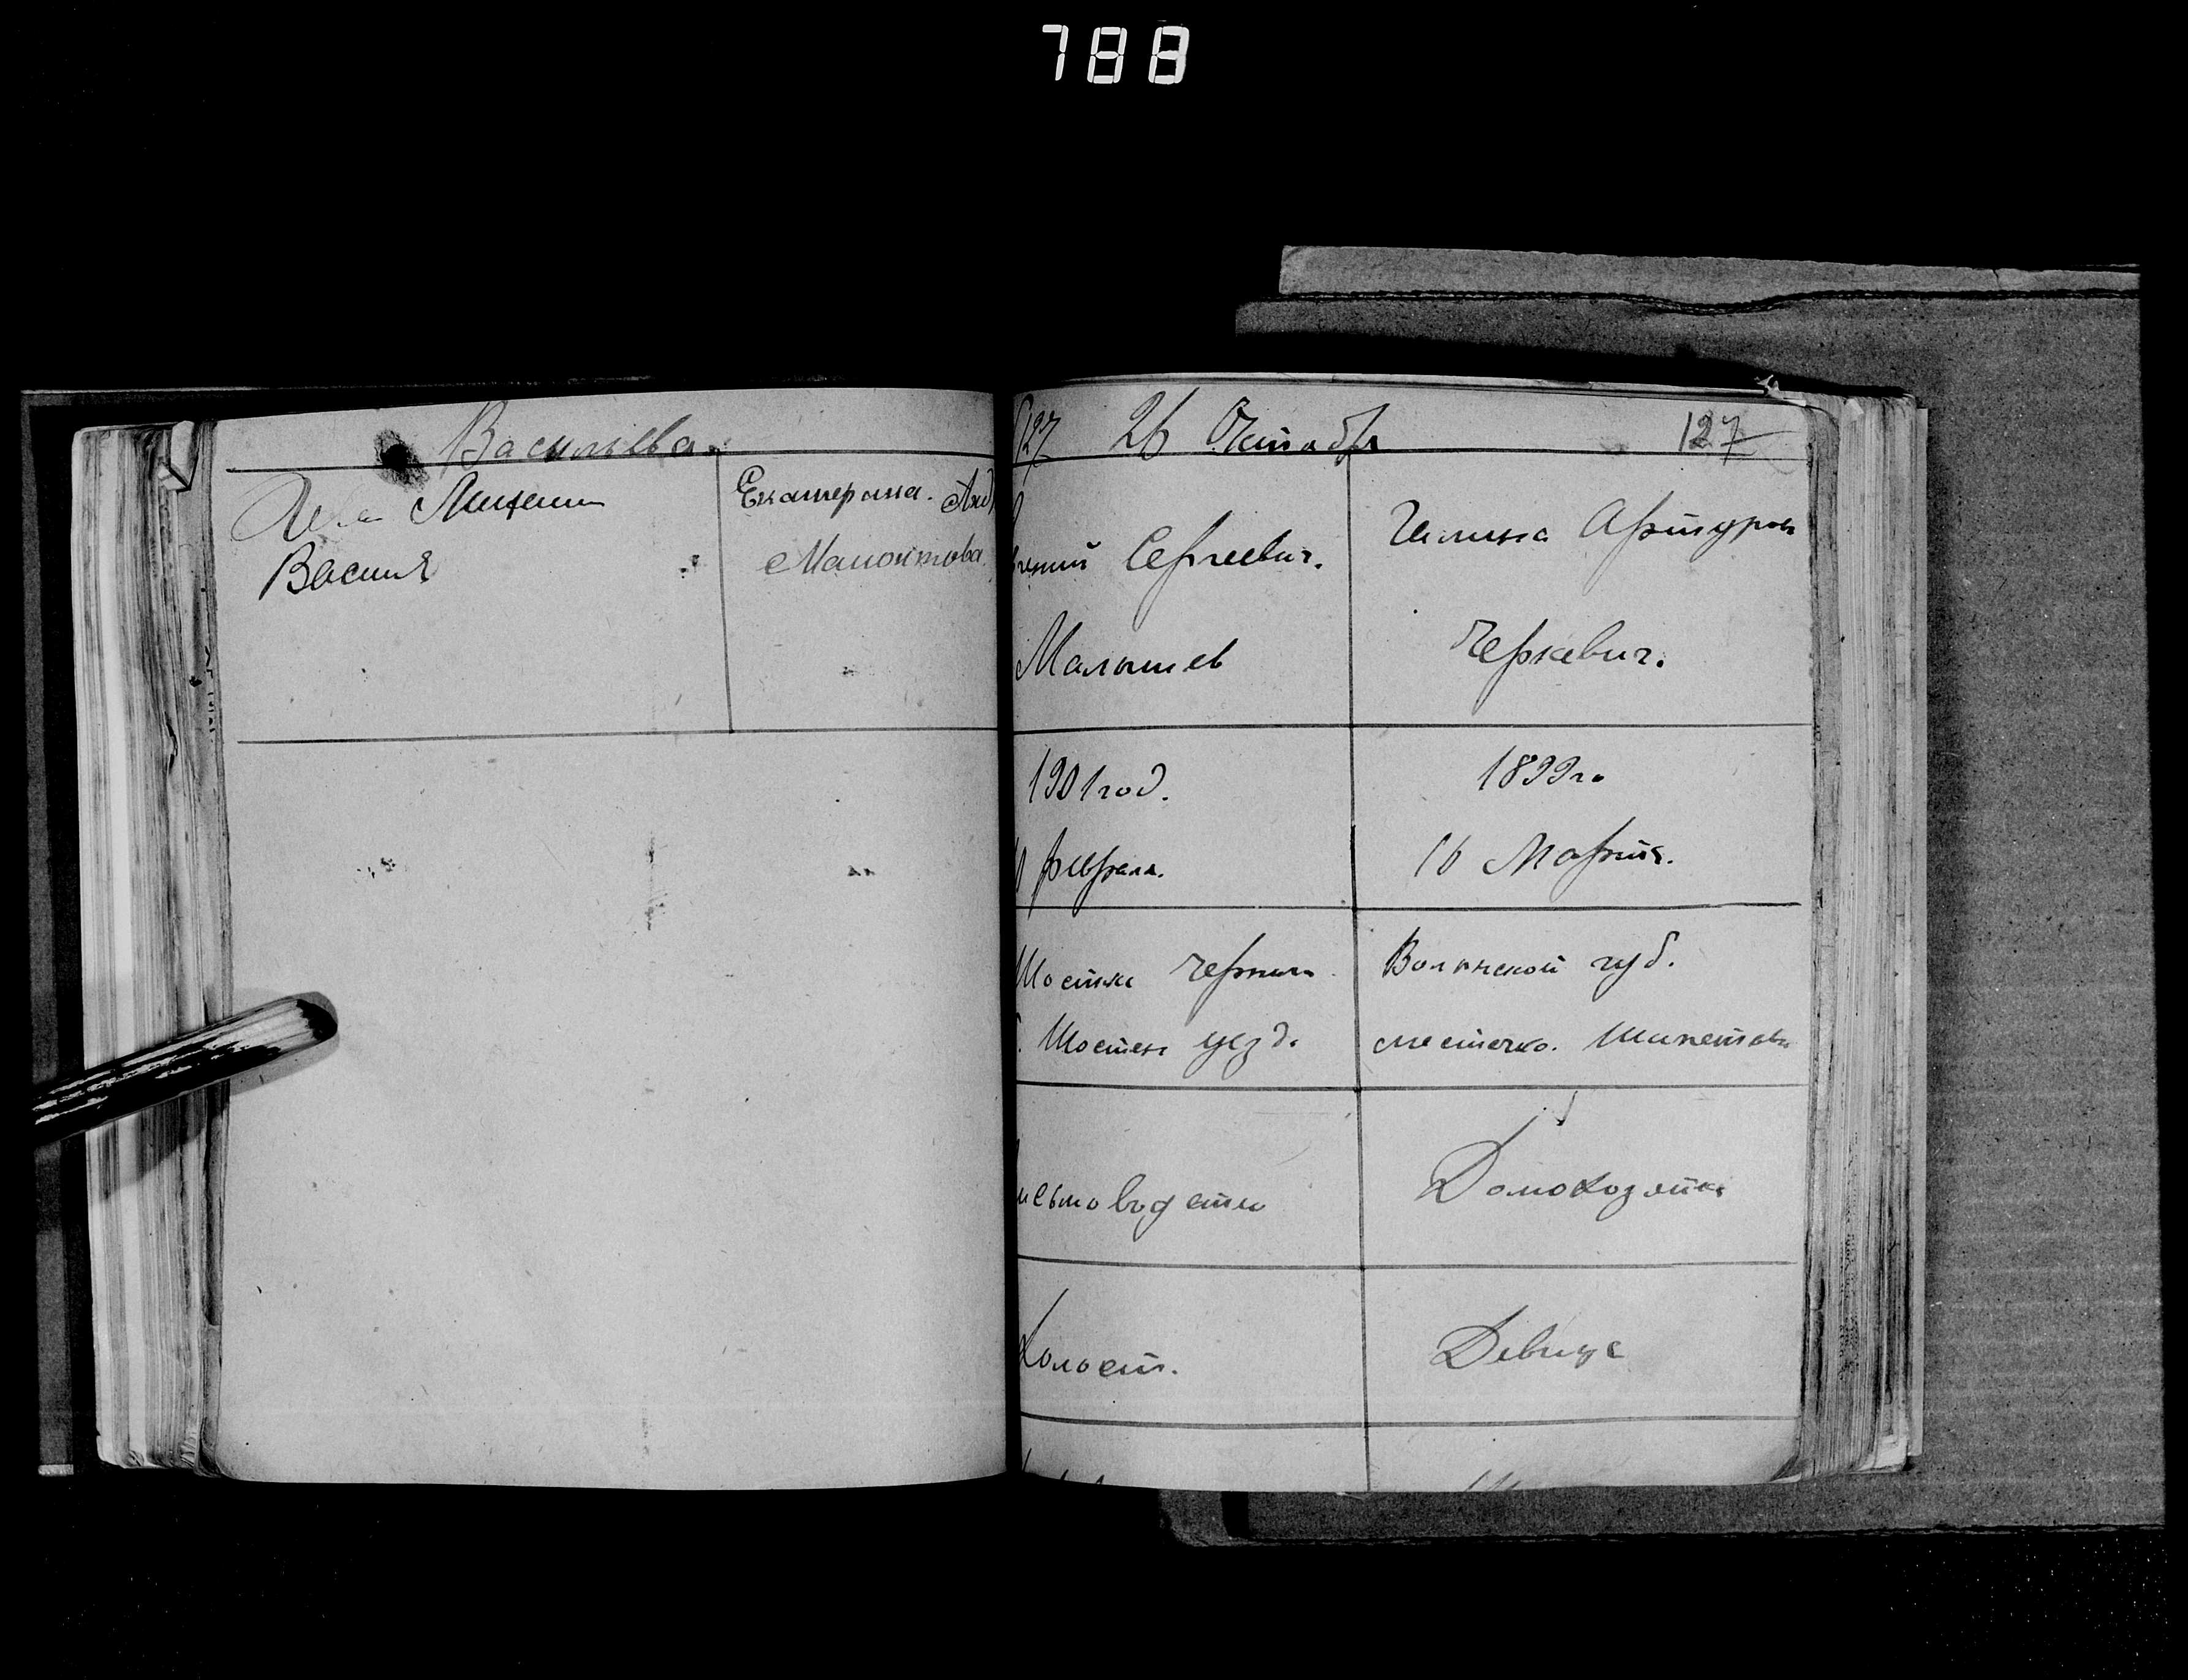 788
Васильева.
Михаил
Васил
Екатерина. Анд
127 26 Октября 127
гений Сергеевич.
Малышев
Галина Артуров
Черкевич.
1901 год.
февраля.
1899 г.
16 Марта.
Шостка Черниг
Шостен уезд.
Волынской губ.
местечко. Шепетовка
исьмоводство
Домохозяйка
Холост.
Девица